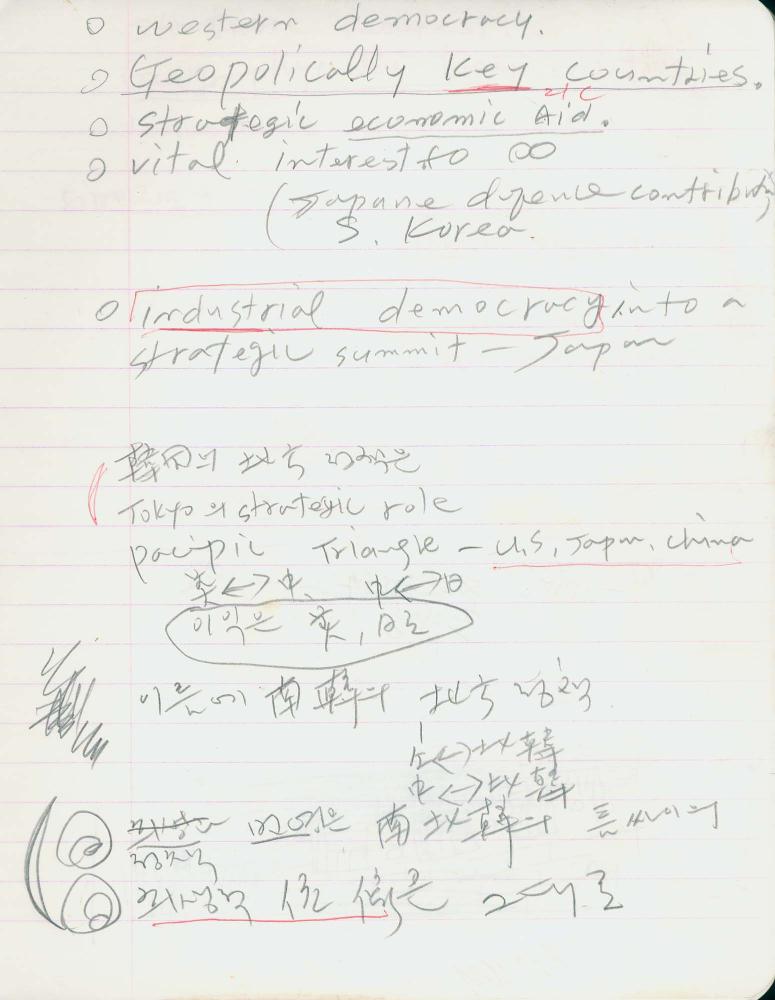 o western democracy.
o Geopolically key countries.
o strategic economic Aid.
o vital interest to ∞
(Japane defence contributi
S. Korea.
o industrial democracy into a
strategic summit – Japan
韓国의 北方 정책은
Tokyo의 strategic role
pacipic Triangle – U.S, Japan, China
美<->中 中<->日
이익은 美, 日로
이름에 南韓의 北方 정책
<->北韓
中<->北韓
은 南北韓의 틈싸이의
정책
그대로